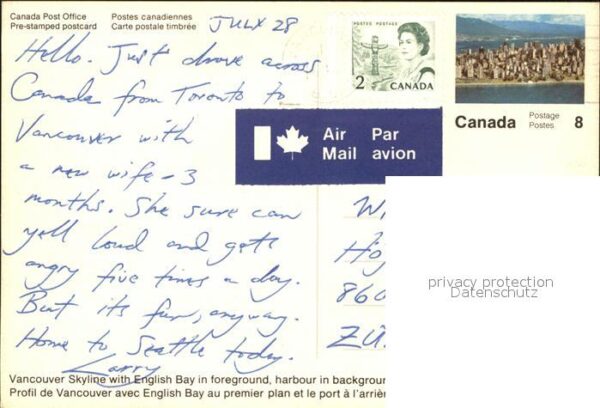 Canada Post Office
Pre-stamped postcard
Postes canadiennes
Carte postale timbrée
JULY 28
Hello. Just drove across
Canada from Toronto to
Vancouver with
a new wife - 3
months. She sure can
yell loud and gets
angry five times a day.
But its fun, anyway.
Home to Seattle today.
Larry
POSTES POSTAGE
2 CANADA
Canada Postage
Postes 8
Air Par
Mail avion
W
Hö
860
ZÜ
privacy protection
Datenschutz
Vancouver Skyline with English Bay in foreground, harbour in backgroun
Profil de Vancouver avec English Bay au premier plan et le port à l'arriè